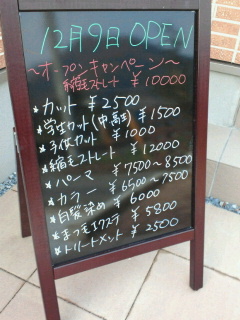 12月9日 OPEN
～オープンキャンペーン～
縮毛ストレート ¥10000
★カット ¥2500
★学生カット(中.高生) ¥1500
★子供カット ¥1000
★縮毛ストレート ¥12000
★パーマ ¥7500～8500
★カラー ¥6500～7500
★白髪染め ¥6000
★まつ毛エクステ ¥5800
★トリートメント ¥2500